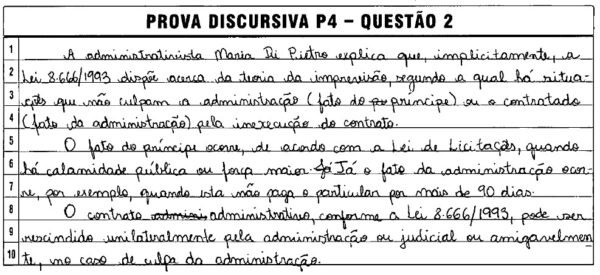 PROVA DISCURSIVA P4 – QUESTÃO 2
1 A administrativista Maria Di Pietro explica que, implicitamente, a
2 Lei 8.666/1993 dispõe acerca da teoria da imprevisão, segundo a qual há situa-
3 ções que não culpam a administração (fato do príncipe) ou o contratado
4 (fato da administração) pela inexecução do contrato.
5 O fato do príncipe ocorre, de acordo com a Lei de Licitações, quando
6 há calamidade pública ou força maior. Já o fato da administração ocor-
7 re, por exemplo, quando esta não paga o particular por mais de 90 dias.
8 O contrato administrativo, conforme a Lei 8.666/1993, pode ser
9 rescindido unilateralmente pela administração ou judicial ou amigavelmen-
10 te, no caso de culpa da administração.